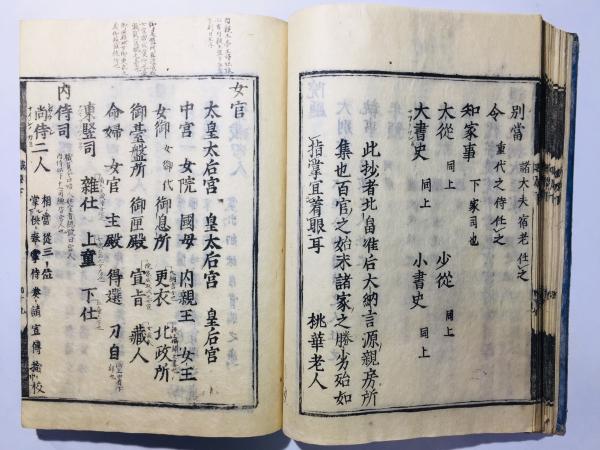 別當 諸大夫宿老仕之
令 重代之侍仕之
知家事 下家司也
大從 同上 少從 同上
大書史 同上 小書史 同上
此抄者北畠准后大納言源親房所
集也百官之始末諸家之勝劣殆如
指掌宜着眼耳
桃華老人
女官
太皇太后宮 皇太后宮 皇后宮
中宮 女院 國母 内親王 女王
女御 女御代 御息所 更衣 北政所
御臺盤所 御匣殿 宣旨 藏人
命婦 女官 主殿 得選 刀自
東竪司 雜仕 上童 下仕
内侍司
尚侍二人 相當從三位
掌供奉常侍奏請宣傳檢校